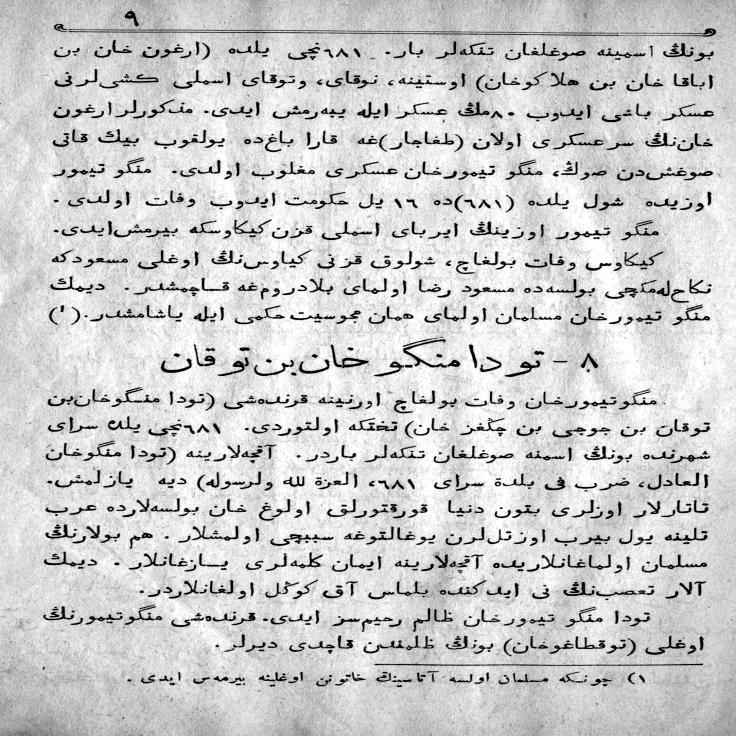 ٩
بونڭ اسمینه صوغلغان تنكه‌لر بار. ٦٨١نچی یلده (ارغون خان بن
اباقا خان بن هلاكوخان) اوستینه، نوقای، وتوقای اسملی كشی‌لرنی
عسكر باشی ایدوب ٨٠مڭ عسكر ایله یبه‌رمش ایدی. مذكورلر ارغون
خان‌نڭ سرعسكری اولان (طغاجار)غه قارا باغ‌ده یولقوب بیك قاتی
صوغش‌دن صوڭ، منگو تیمورخان عسكری مغلوب اولدی. منگو تیمور
اوزیده شول یلده (٦٨١)ده ١٦ یل حكومت ایدوب وفات اولدی.
منگو تیمور اوزینڭ ایربای اسملی قزن كیكاوسكه بیرمش‌ایدی.
كیكاوس وفات بولغاچ، شولوق قزنی كیاوس‌نڭ اوغلی مسعودكه
نكاح‌له‌مكچی بولسه‌ده مسعود رضا اولمای بلادروم‌غه قاچمشدر. دیمك
منگو تیمورخان مسلمان اولمای همان مجوسیت حكمی ایله یاشامشدر.(١)
٨ – تودا منگو خان بن توقان
منگوتیمورخان وفات بولغاچ اورنینه قرنده‌شی (تودا منگوخان‌بن
توقان بن جوجی بن چنگفز خان) تختكه اولتوردی. ٦٨١نچی یلده سرای
شهرنده بونڭ اسمنه صوغلغان تنكه‌لر باردر. آقچه‌لارینه (تودا منگوخان
العادل، ضرب فی بلدة سرای ٦٨١، العزة لله ولرسوله) دیه یازلمش.
تاتارلار اوزلری بتون دنیا قورقتورلق اولوغ خان بولسه‌لارده عرب
تلینه یول بیرب اوزتل‌لرن یوغالتوغه سببچی اولمشلار. هم بولارنڭ
مسلمان اولماغانلاریده آقچه‌لارینه ایمان كلمه‌لری یازغانلار. دیمك
آلار تعصب‌نڭ نی ایدكنده بلماس آق كوڭل اولغانلاردر.
تودا منگو تیمورخان ظالم رحیم‌سز ایدی. قرنده‌شی منگوتیمورنڭ
اوغلی (توقطاغوخان) بونڭ ظلمندن قاچدی دیرلر.
١) چونكه مسلمان اولسه آتاسینڭ خاتونن اوغلینه بیرمه‌س ایدی.